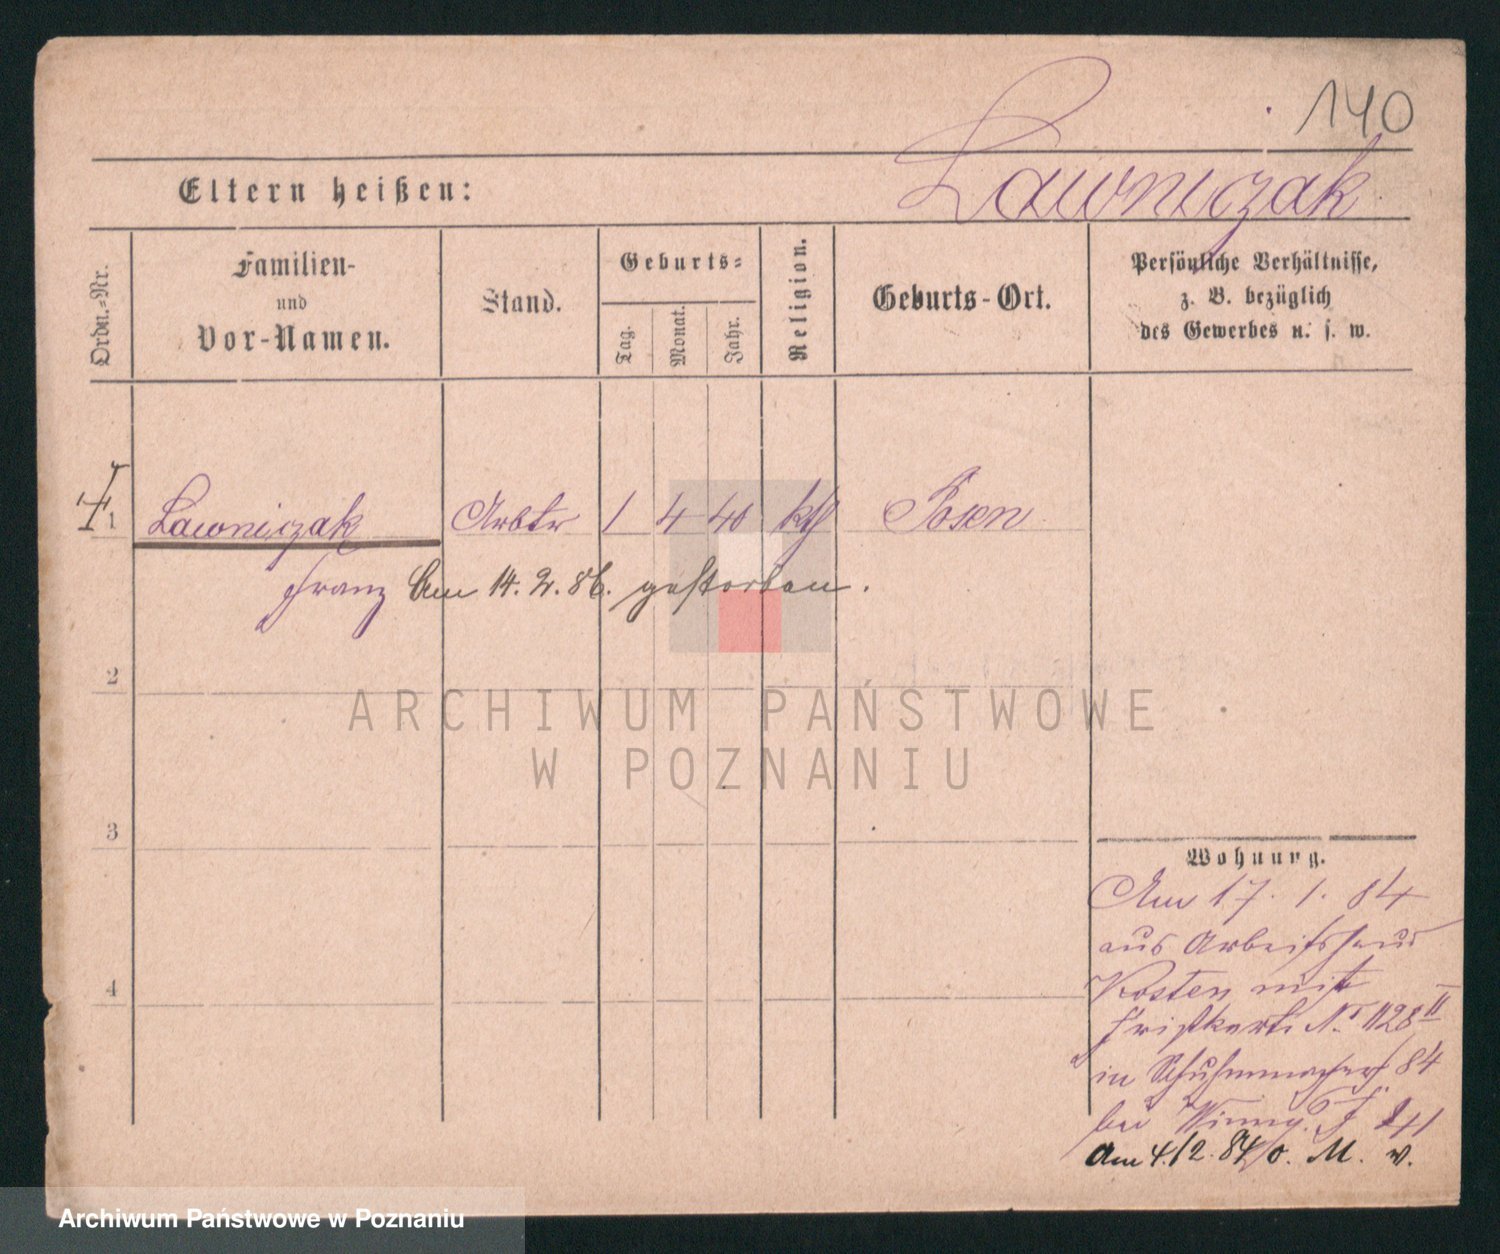 140
Lawniczak
Eltern heißen:
Ordn.-Nr.
Familien-
und
Vor-Namen.
Stand.
Geburts-
Tag.
Monat.
Jahr.
Religion.
Geburts-Ort.
Persönliche Verhältnisse,
z. B. bezüglich
des Gewerbes u. s. w.
1 Lawniczak Arbtr 1 4 40 kth Posen
Franz Am 14. 2. 86. gestorben.
2
3
4
Wohnung.
Am 17. 1. 84
aus Arbeitshaus
Kosten mit
No 1128 II
in 84
bei
Am 4./2. 84 o. M. v.
ARCHIWUM PAŃSTWOWE
W POZNANIU
Archiwum Państwowe w Poznaniu